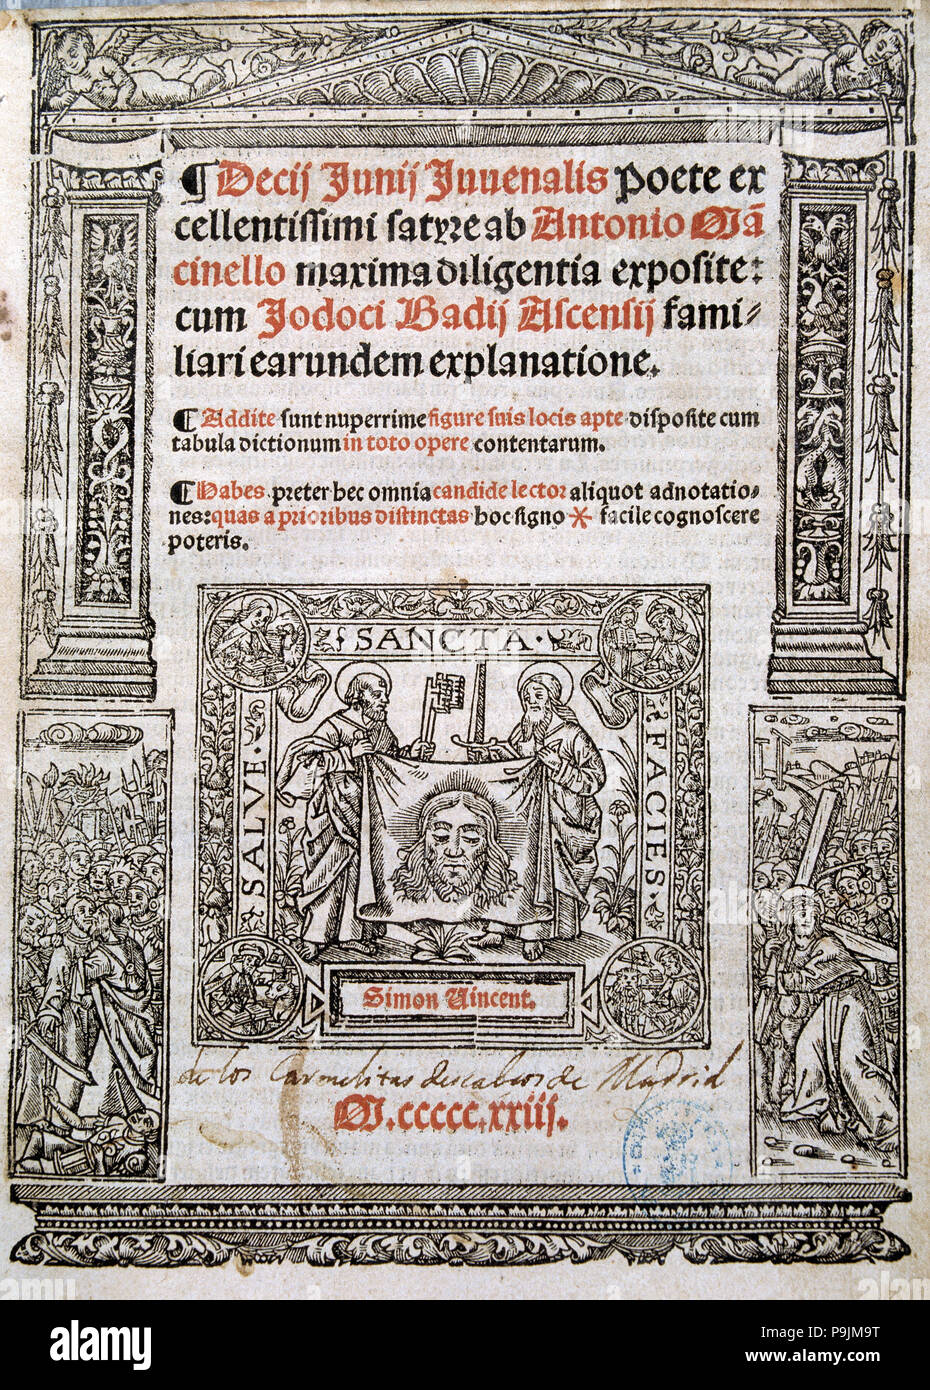 ¶ Decij Junij Juuenalis poete ex
cellentissimi satyre ab Antonio Mã
cinello maxima diligentia exposite:
cum Jodoci Badij Ascensij fami⸗
liari earundem explanatione.
¶ Addite sunt nuperrime figure suis locis apte disposite cum
tabula dictionum in toto opere contentarum.
¶ Habes preter hec omnia candide lector aliquot adnotatio⸗
nes: quas a prioribus distinctas hoc signo * facile cognoscere
poteris.
SANCTA
SALVE
FACIES
Simon Uincent.
de los Carmelitas descalços de Madrid
M.ccccc.xxiij.
alamy
Image ID: P9JM9T
www.alamy.com